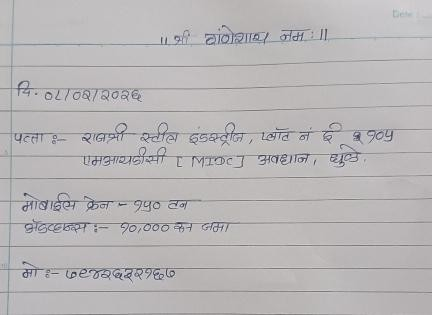 Date :
॥ श्री गणेशाय नमः ॥
दि. ०८/०२/२०२६
पत्ता :- राजश्री स्टील इंडस्ट्रीज, प्लॉट नं ई १०५
एमआयडीसी [MIDC] अवधान, धुळे.
मोबाईल क्रेन - १५० टन
अ‍ॅडव्हान्स :- १०,००० रु जमा
मो :- ७८४२६३२१६७